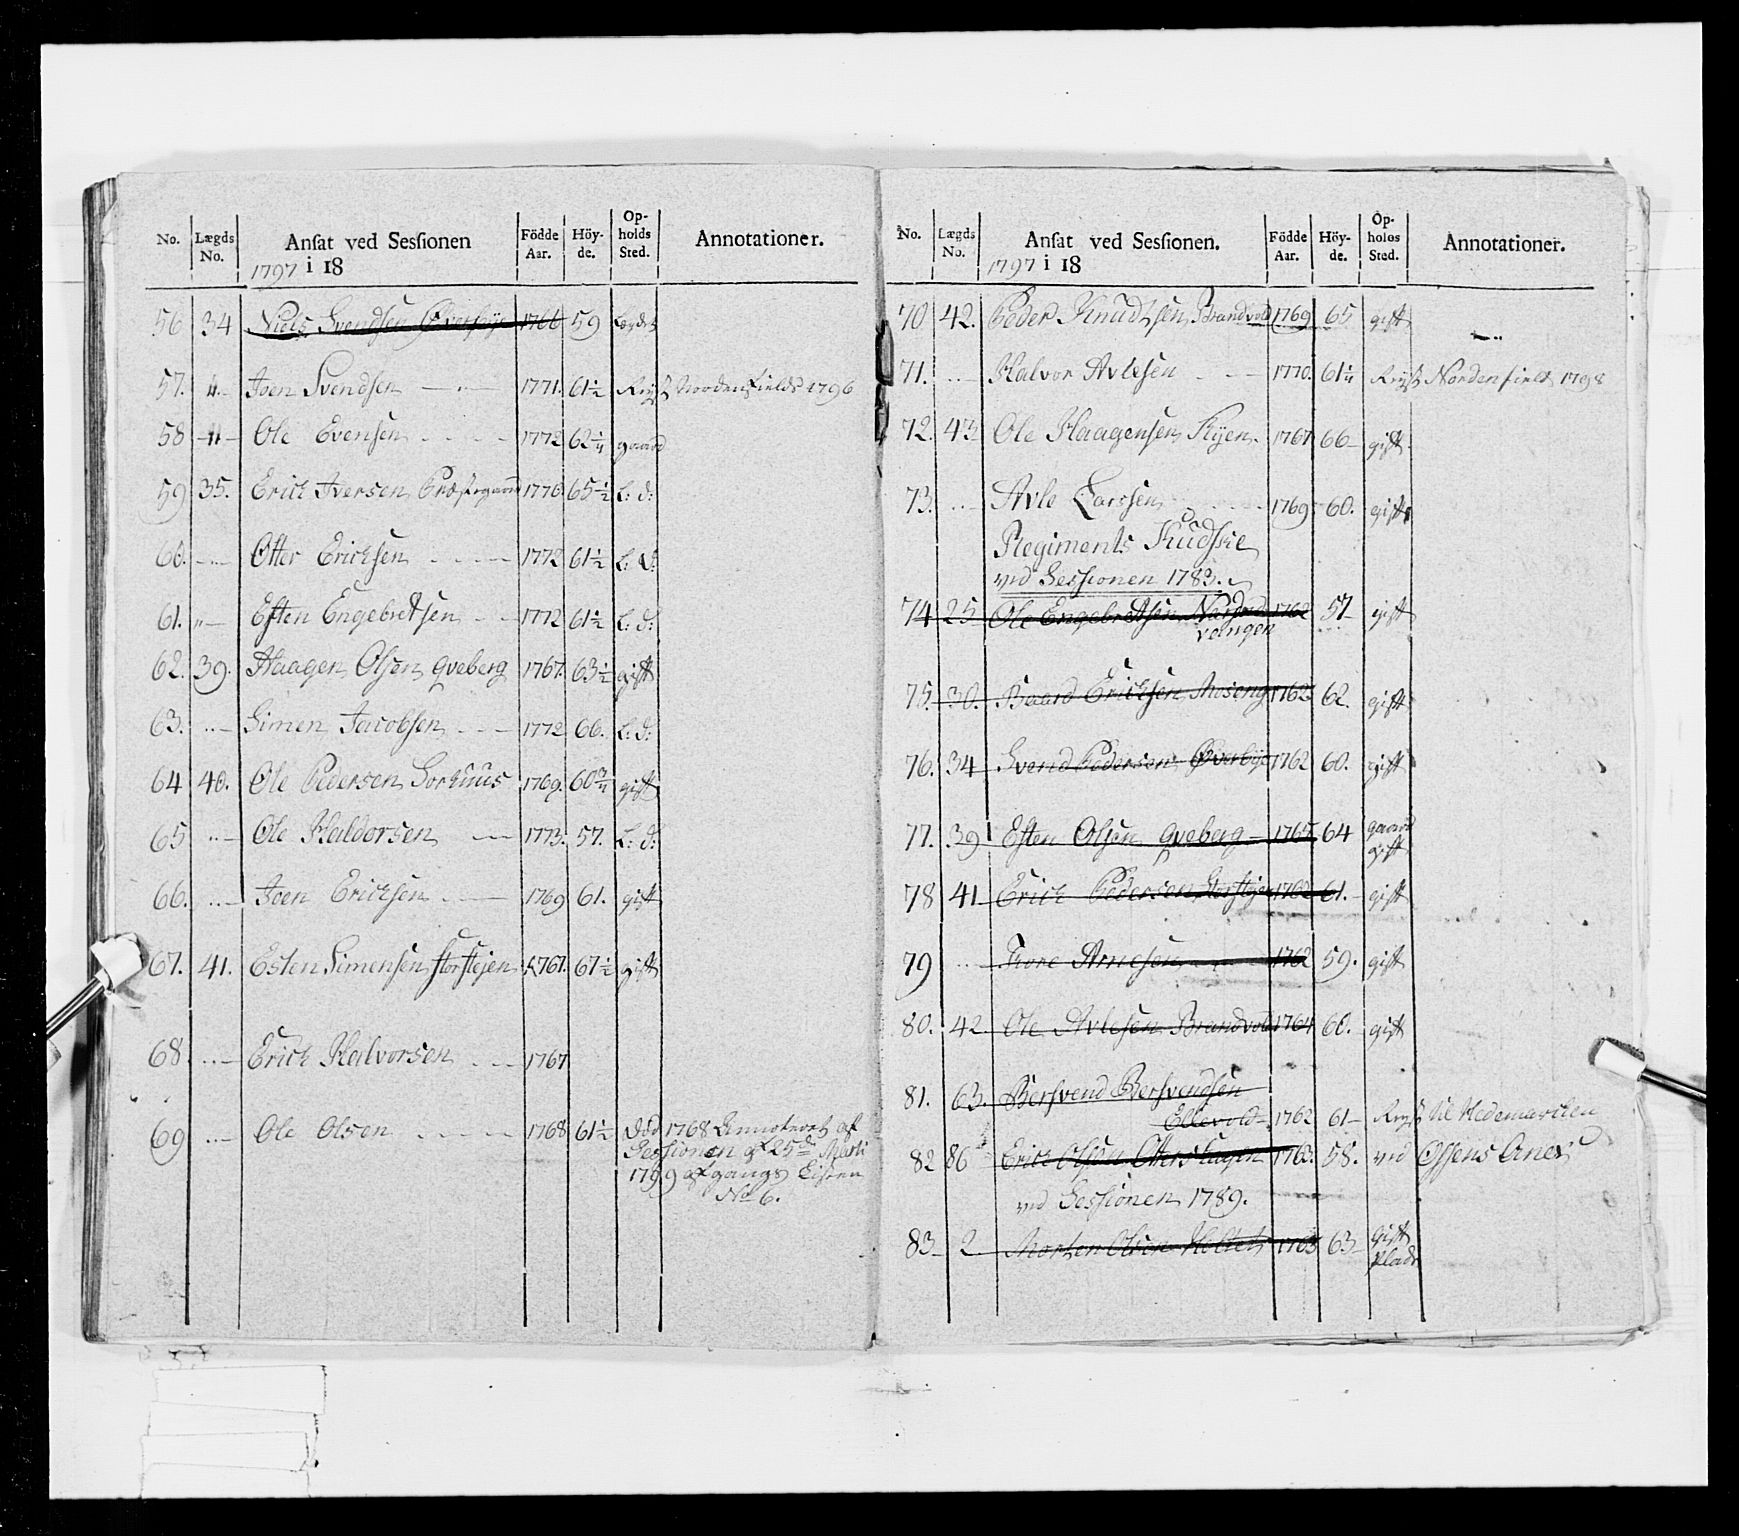 No. Lægds No. Ansat ved Sessionen 1797 i 18 Födde Aar. Höyde. Opholds Sted. Annotationer.
56 34 Niels Svendsen Øverbÿe 1766 59
57. 〃 Joen Svendsen 1771. 61½ Reÿst Nordenfields 1796
58 〃 Ole Evensen 1772 62¼ gaard
59 35. Erich Iversen Præstegaard 1770 65½ L: d:
60. 〃 Otter Erichsen 1772 61½ L: d:
61. 〃 Esten Engebretsen 1772 61½ L: d:
62. 39. Haagen Olsen Qveberg 1767. 63½ gift
63. 〃 Simen Jacobsen 1772 66. L: d:
64 40. Ole Pedersen Sorhuus 1769. 60¾ gift
65 〃 Ole Haldorsen 1773. 57. L: d:
66. 〃 Joen Erichsen 1769 61. gift
67. 41. Esten Simensen Storstejen 1767. 67½ gift
68. 〃 Erich Halvorsen 1767
69 〃 Ole Olsen 1768 61½ Död 1768
Sessionen af 25de Martii
1799 afgangs Listen
No 6.
No. Lægds No. Ansat ved Sessionen. 1797 i 18 Födde Aar. Höyde. Opholds Sted. Annotationer.
70 42. Peder Knudtsen Brandvold 1769 65 gift
71. 〃 Halvor Avlesen 1770. 61¼ Reÿst Nordenfield 1798
72. 43 Ole Haagensen Kÿen 1767 66 gift
73. 〃 Avle Larssen 1769 60. gift
Regiments Kudske
ved Sessionen 1783.
74 25 Ole Engebretsen Nordre 1762 57 gift
vangen
75. 30. Baard Erichsen Moseng 1762 62. gift
76. 34 Svend Pedersen Øverbÿe 1762 60. gift
77. 39 Esten Olsen Qveberg 1765 64 gaard
gift
78 41 Erich Pedersen Storstejen 1762 61. gift
79 〃 Tore Arnesen 1762 59. gift
80. 42 Ole Avlesen Brandvold 1764 60. gift
81. 63. Bersvend Bersvendsen
Ellevold 1762 61 Reÿst til Hedemarcken
82 86 Erich Olsen 1763. 58. ved Ossens Anex
ved Sessionen 1789.
83 2 Morten Olsen Holtet 1763 63 gift
Pladz